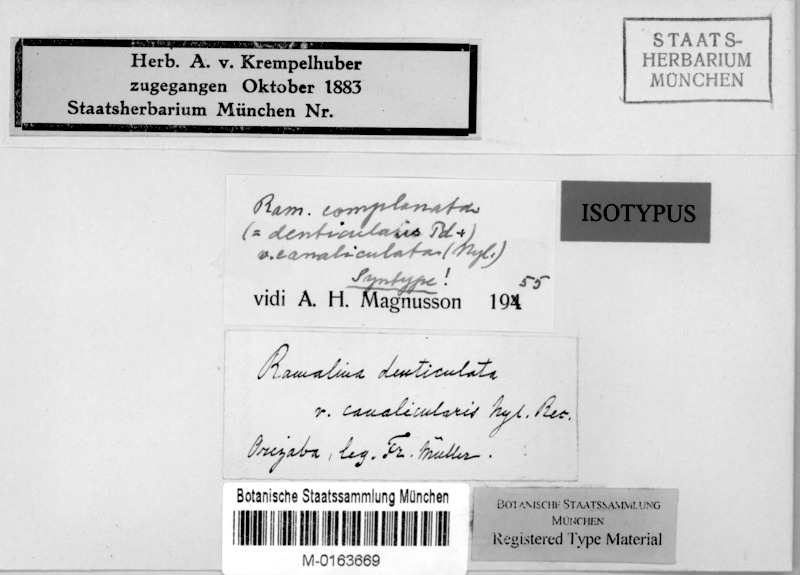 Herb. A. v. Krempelhuber
zugegangen Oktober 1883
Staatsherbarium München Nr.
STAATS-
HERBARIUM
MÜNCHEN
Ram. complanata
(= denticularis Pd+)
v. canaliculata (Nyl.)
Syntype!
vidi A. H. Magnusson 19455
ISOTYPUS
Ramalina denticulata
v. canalicularis Nyl. Rec.
Orizaba, leg. Fr. Müller.
Botanische Staatssammlung München
M-0163669
BOTANISCHE STAATSSAMMLUNG
MÜNCHEN
Registered Type Material